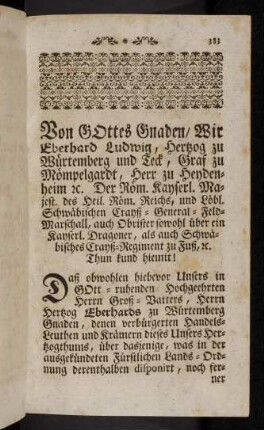 383
Von GOttes Gnaden/ Wir
Eberhard Ludwig, Hertzog zu
Würtemberg und Teck, Graf zu
Mömpelgardt, Herr zu Heyden-
heim ꝛc. Der Röm. Kayserl. Ma-
jest. des Heil. Röm. Reichs, und Löbl.
Schwäbischen Crayß-General-Feld-
Marschall, auch Obrister sowohl über ein
Kayserl. Dragoner, als auch Schwä-
bisches Crayß-Regiment zu Fuß, ꝛc.
Thun kund hiemit!
Daß obwohlen hiebevor Unsers in
GOtt-ruhenden Hochgeehrten
Herrn Groß-Vatters, Herrn
Hertzog Eberhards zu Würtemberg
Gnaden, denen verbürgerten Handels-
Leuthen und Krämern dieses Unsers Her-
zogthums, über dasjenige, was in der
ausgekündeten Fürstlichen Lands-Ord-
nung derenthalben disponirt, noch fer-
ner